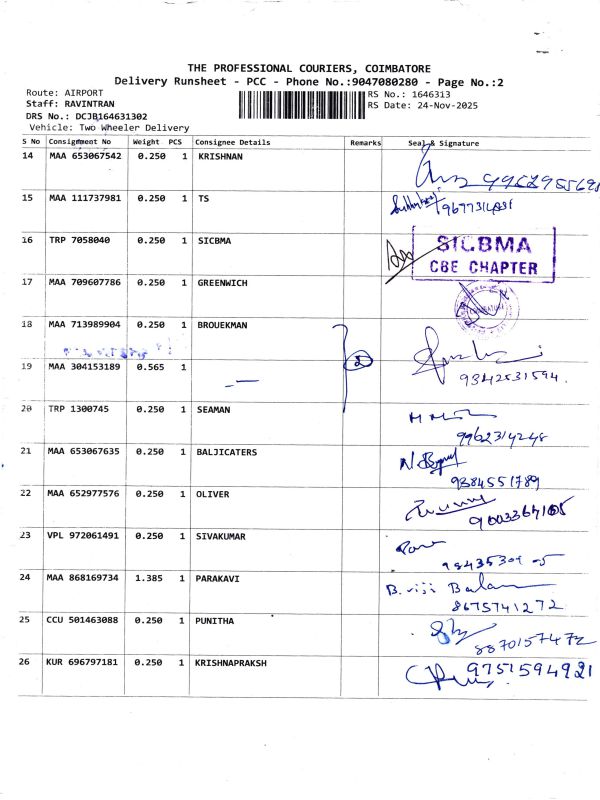 THE PROFESSIONAL COURIERS, COIMBATORE
Delivery Runsheet - PCC - Phone No.:9047080280 - Page No.:2
Route: AIRPORT
RS No.: 1646313
Staff: RAVINTRAN
RS Date: 24-Nov-2025
DRS No.: DCJB164631302
Vehicle: Two Wheeler Delivery
S No Consignment No Weight PCS Consignee Details Remarks Seal & Signature
14 MAA 653067542 0.250 1 KRISHNAN
15 MAA 111737981 0.250 1 TS
16 TRP 7058040 0.250 1 SICBMA
SICBMA
CBE CHAPTER
17 MAA 709607786 0.250 1 GREENWICH
18 MAA 713989904 0.250 1 BROUEKMAN
19 MAA 304153189 0.565 1
2
9342531594.
20 TRP 1300745 0.250 1 SEAMAN
9962314248
21 MAA 653067635 0.250 1 BALJICATERS
9384551789
22 MAA 652977576 0.250 1 OLIVER
23 VPL 972061491 0.250 1 SIVAKUMAR
24 MAA 868169734 1.385 1 PARAKAVI
B. viji Balan
8675741272
25 CCU 501463088 0.250 1 PUNITHA
8870157472
26 KUR 696797181 0.250 1 KRISHNAPRAKSH
9751594921